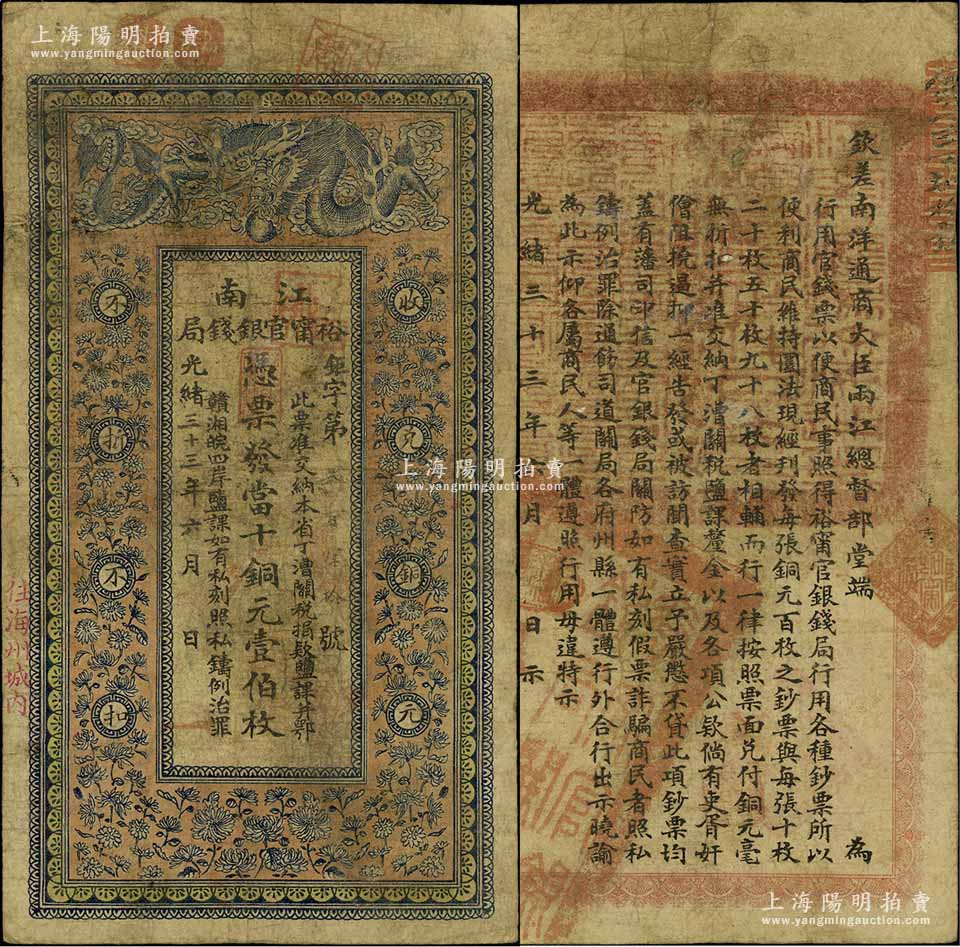 上海陽明拍賣
www.yangmingauction.com
江南
裕甯官銀錢局
鉅字第
號
此票准交納本省丁漕關稅捐款鹽課并鄂
憑票發當十銅元壹佰枚
贛湘皖四岸鹽課如有私刻照私鑄例治罪
光緒三十三年六月 日
收兌銅元
不折不扣
住海州城內
上海陽明拍賣
www.yangmingauction.com
欽差南洋通商大臣兩江總督部堂端 為
行用官錢票以便商民事照得裕甯官銀錢局行用各種鈔票所以
便利商民維持圜法現經刊發每張銅元百枚之鈔票與每張十枚
二十枚五十枚九十八枚者相輔而行一律按照票面兌付銅元毫
無折扣并准交納丁漕關稅鹽課釐金以及各項公欵倘有吏胥奸
儈阻撓過抑一經告發或被訪聞查實立予嚴懲不貸此項鈔票均
蓋有藩司印信及官銀錢局關防如有私刻假票詐騙商民者照私
鑄例治罪除通飭司道關局各府州縣一體遵行外合行出示曉諭
為此示仰各屬商民人等一體遵照行用毋違特示
光緒三十三年六月 日示
上海陽明拍賣
www.yangmingauction.com